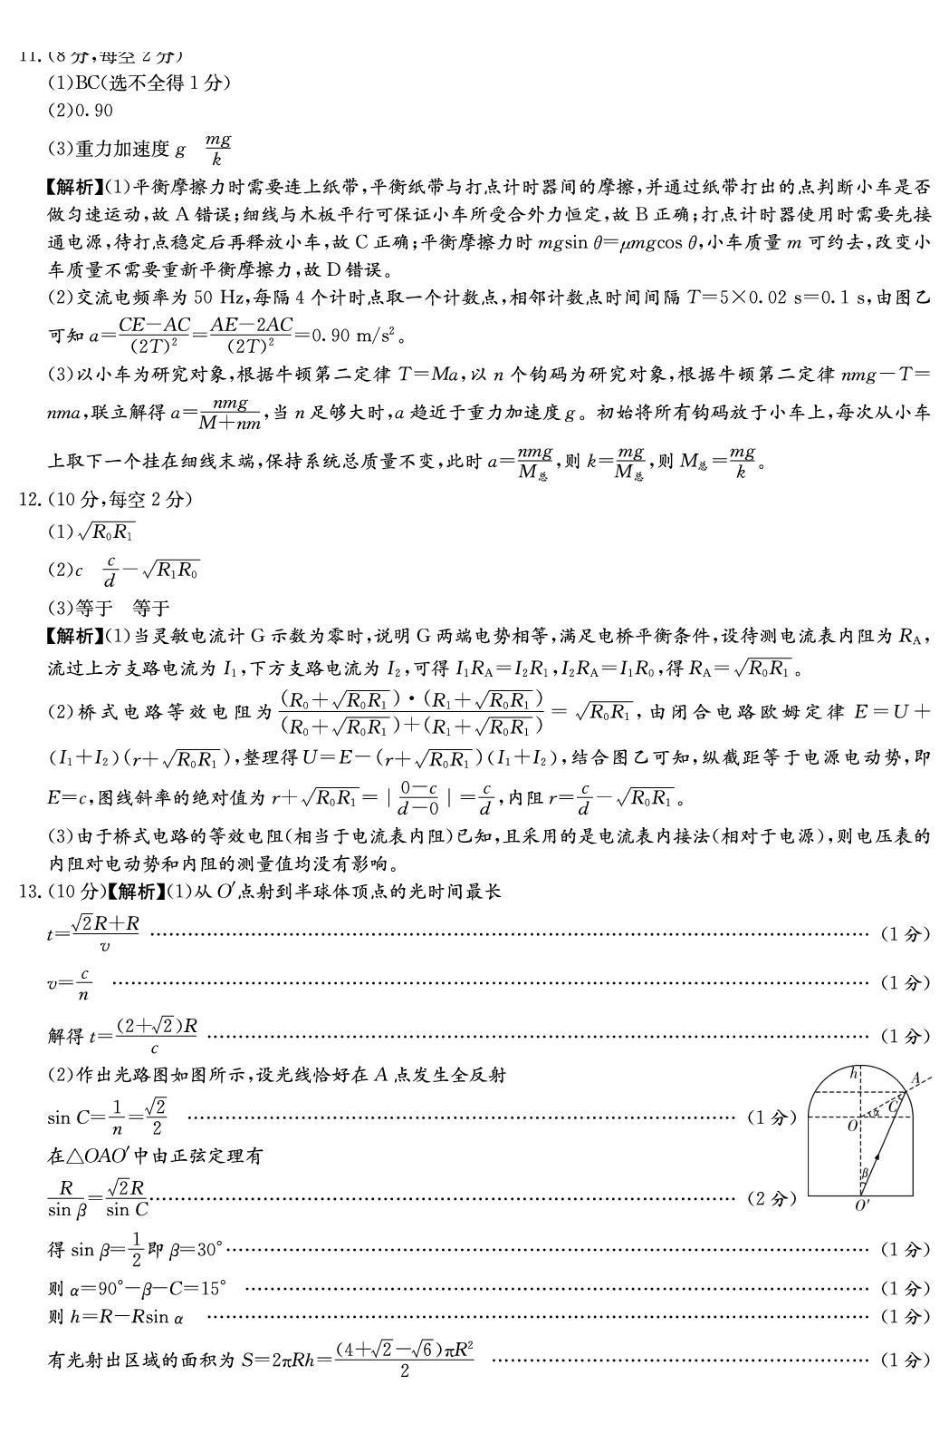 11. (8 分,每空 2 分)
(1)BC(选不全得 1 分)
(2)0.90
(3)重力加速度 g  mg/k
【解析】(1)平衡摩擦力时需要连上纸带,平衡纸带与打点计时器间的摩擦,并通过纸带打出的点判断小车是否
做匀速运动,故 A 错误;细线与木板平行可保证小车所受合外力恒定,故 B 正确;打点计时器使用时需要先接
通电源,待打点稳定后再释放小车,故 C 正确;平衡摩擦力时 mgsin θ=μmgcos θ,小车质量 m 可约去,改变小
车质量不需要重新平衡摩擦力,故 D 错误。
(2)交流电频率为 50 Hz,每隔 4 个计时点取一个计数点,相邻计数点时间间隔 T=5×0.02 s=0.1 s,由图乙
可知 a=(CE-AC)/(2T)²=(AE-2AC)/(2T)²=0.90 m/s²。
(3)以小车为研究对象,根据牛顿第二定律 T=Ma,以 n 个钩码为研究对象,根据牛顿第二定律 nmg-T=
nma,联立解得 a=nmg/(M+nm),当 n 足够大时,a 趋近于重力加速度 g。初始将所有钩码放于小车上,每次从小车
上取下一个挂在细线末端,保持系统总质量不变,此时 a=nmg/M总,则 k=mg/M总,则 M总=mg/k。
12. (10 分,每空 2 分)
(1)√(R₀R₁)
(2)c  c/d-√(R₁R₀)
(3)等于  等于
【解析】(1)当灵敏电流计 G 示数为零时,说明 G 两端电势相等,满足电桥平衡条件,设待测电流表内阻为 R_A,
流过上方支路电流为 I₁,下方支路电流为 I₂,可得 I₁R_A=I₂R₁,I₂R_A=I₁R₀,得 R_A=√(R₀R₁)。
(2)桥式电路等效电阻为 (R₀+√(R₀R₁))·(R₁+√(R₀R₁))/((R₀+√(R₀R₁))+(R₁+√(R₀R₁)))=√(R₀R₁),由闭合电路欧姆定律 E=U+
(I₁+I₂)(r+√(R₀R₁)),整理得U=E-(r+√(R₀R₁))(I₁+I₂),结合图乙可知,纵截距等于电源电动势,即
E=c,图线斜率的绝对值为 r+√(R₀R₁)=|(0-c)/(d-0)|=c/d,内阻 r=c/d-√(R₀R₁)。
(3)由于桥式电路的等效电阻(相当于电流表内阻)已知,且采用的是电流表内接法(相对于电源),则电压表的
内阻对电动势和内阻的测量值均没有影响。
13. (10 分)【解析】(1)从 O′点射到半球体顶点的光时间最长
t=(√2R+R)/v ……(1 分)
v=c/n ……(1 分)
解得 t=(2+√2)R/c ……(1 分)
(2)作出光路图如图所示,设光线恰好在 A 点发生全反射
sin C=1/n=√2/2 ……(1 分)
在△OAO′中由正弦定理有
R/sin β=√2R/sin C ……(2 分)
得 sin β=1/2 即 β=30° ……(1 分)
则 α=90°-β-C=15° ……(1 分)
则 h=R-Rsin α ……(1 分)
有光射出区域的面积为 S=2πRh=(4+√2-√6)πR²/2 ……(1 分)
h
A
C
α
O
β
O′